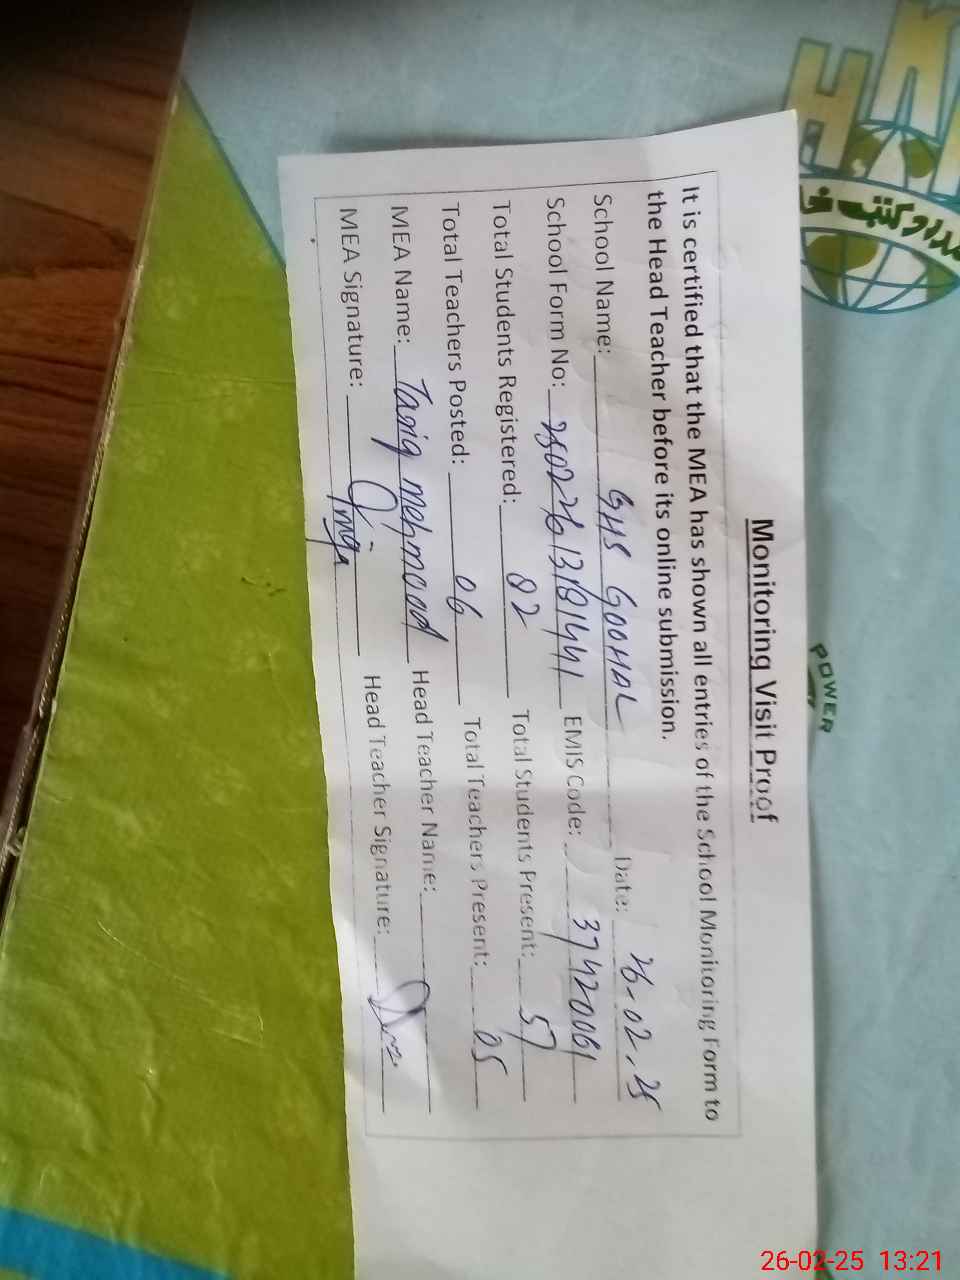 Monitoring Visit Proof
It is certified that the MEA has shown all entries of the School Monitoring Form to
the Head Teacher before its online submission.
School Name: GHS GOOHAL Date: 26-02-25
School Form No: 250226131811441 EMIS Code: 37420061
Total Students Registered: 82 Total Students Present: 57
Total Teachers Posted: 06 Total Teachers Present: 05
MEA Name: Tariq mehmood Head Teacher Name:
MEA Signature: Head Teacher Signature:
POWER
26-02-25 13:21